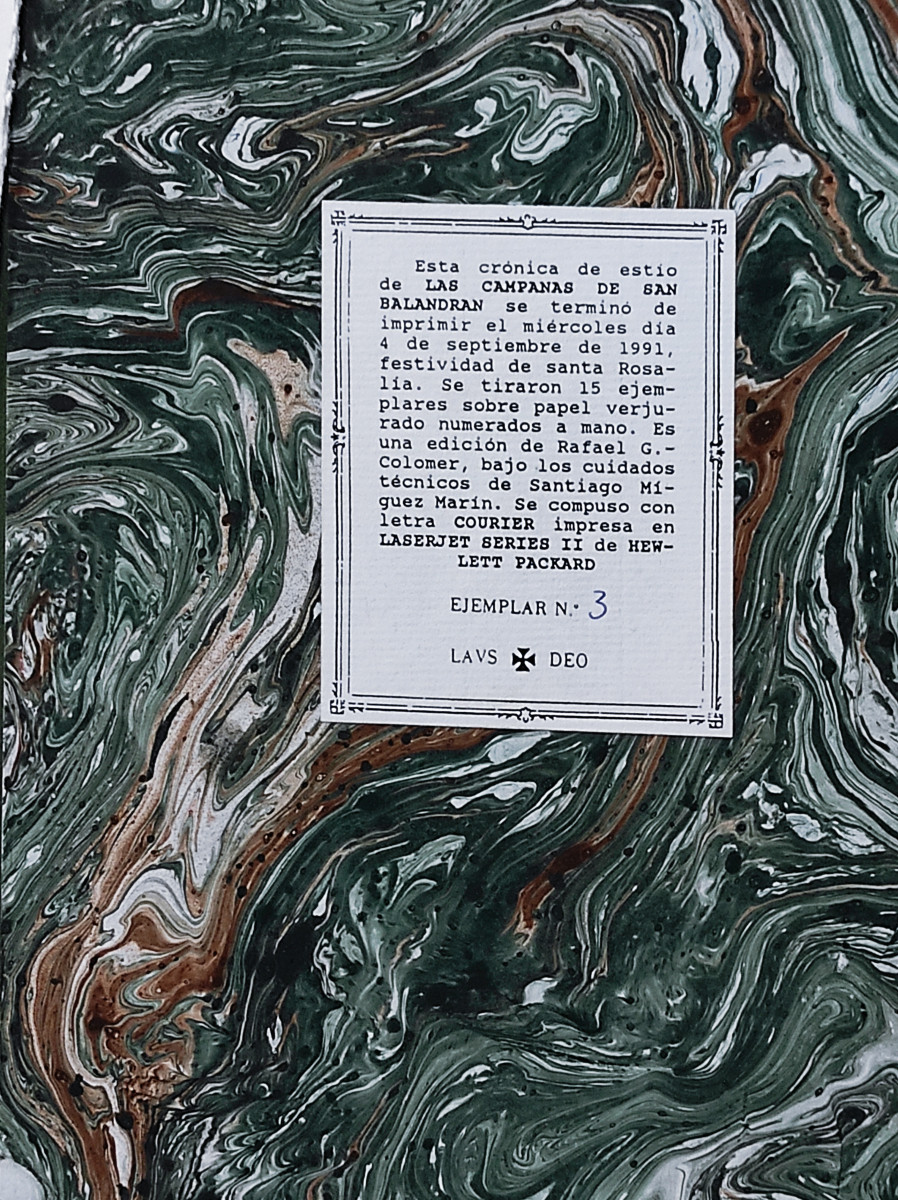 Esta crónica de estío
de LAS CAMPANAS DE SAN
BALANDRAN se terminó de
imprimir el miércoles día
4 de septiembre de 1991,
festividad de santa Rosa-
lía. Se tiraron 15 ejem-
plares sobre papel verju-
rado numerados a mano. Es
una edición de Rafael G.-
Colomer, bajo los cuidados
técnicos de Santiago Mí-
guez Marín. Se compuso con
letra COURIER impresa en
LASERJET SERIES II de HEW-
LETT PACKARD
EJEMPLAR N.º 3
LAVS ✠ DEO